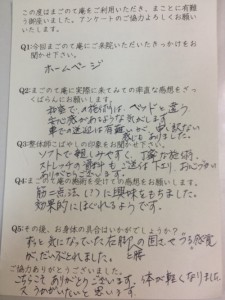 この度はまごのて庵をご利用いただき、まことに有難う御座いました。アンケートのご協力よろしくお願いいたします。
Q1:今回まごのて庵にご来院いただいたきっかけをお聞かせ下さい。
ホームページ
Q2:まごのて庵に実際に来てみての率直な感想をざっくばらんにお願いします。
和室での施術は、ベッドと違う
安心感があるような気がします
車での送迎は有難いが、申し訳ない
感じもありました。
Q3:整体師こばやしの印象をお聞かせ下さい。
ソフトで親しみやすく、丁寧な施術。
ストレッチの
ありがとうございます。
Q4:まごのて庵の施術を受けての感想をお願いします。
筋二点法(?)に興味をもちました。
効果的にほぐれるようです。
Q5:その後、お身体の具合はいかがでしょうか?
ずっと気になっていた右脚の
がだいぶとれました。
ご協力ありがとうございました。
こちらこそありがとうございます。体が軽くなりました。
又うかがいたいと思います。